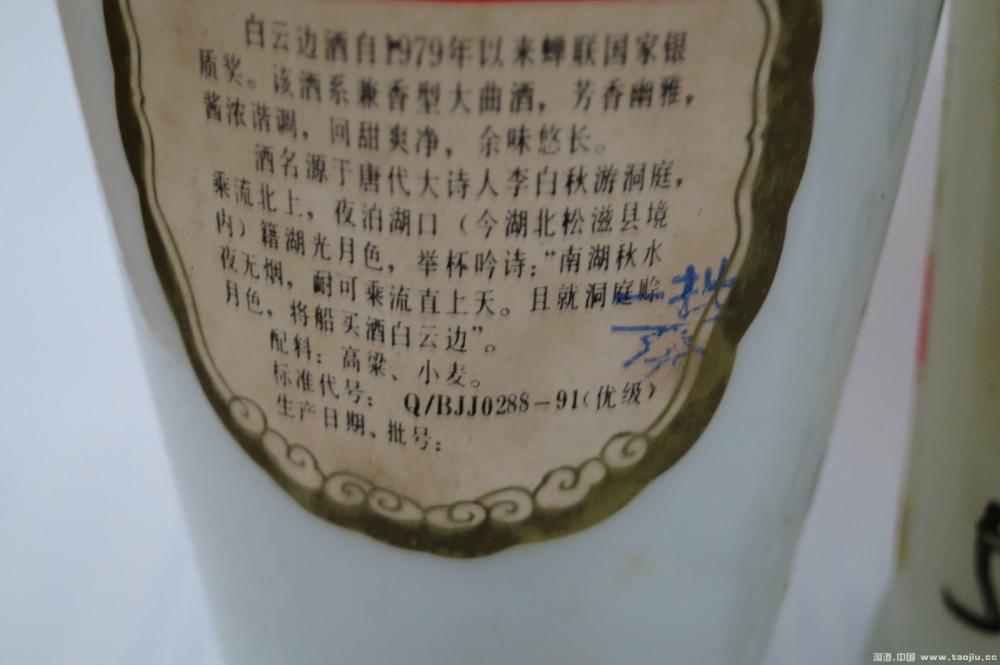 白云边酒自1979年以来蝉联国家银
质奖。该酒系兼香型大曲酒，芳香幽雅，
酱浓谐调，回甜爽净，余味悠长。
酒名源于唐代大诗人李白秋游洞庭，
乘流北上，夜泊湖口（今湖北松滋县境
内）籍湖光月色，举杯吟诗：“南湖秋水
夜无烟，耐可乘流直上天。且就洞庭赊
月色，将船买酒白云边”。
配料：高粱、小麦。
标准代号：Q/BJJ0288－91（优级）
生产日期、批号：
淘酒.中国 www.taojiu.cc